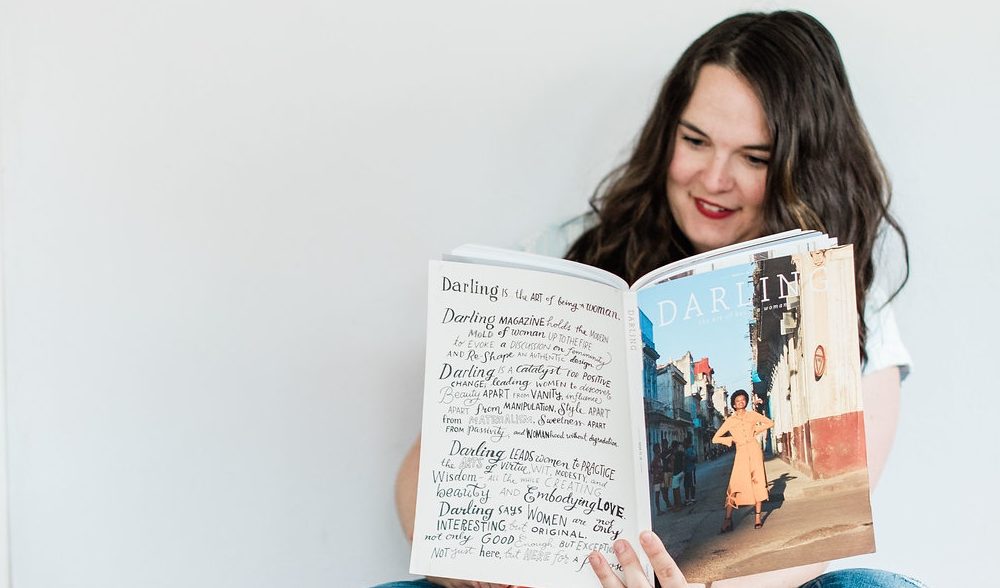 Darling IS the ART of being a woman.
Darling MAGAZINE holds the MODERN
MOLD of woman UP TO THE FIRE
to EVOKE a DISCUSSION on femininity
AND Re-Shape AN AUTHENTIC design
Darling IS A catalyst FOR POSITIVE
CHANGE, leading WOMEN to discover
Beauty APART FROM VANITY, influence
APART from MANIPULATION, Style APART
from MATERIALISM, Sweetness APART
FROM PASSIVITY, and WOMANhood without degradation.
Darling LEADS women to PRACTICE
the ARTS of virtue, WIT, MODESTY, and
WISDOM - ALL the WHILE CREATING
beauty AND Embodying LOVE.
Darling SAYS WOMEN are not only
INTERESTING, but ORIGINAL.
not only GOOD enough, BUT EXCEPTION
NOT just here, but HERE for a purpose
DARLING
DARLING
the art of being a woman